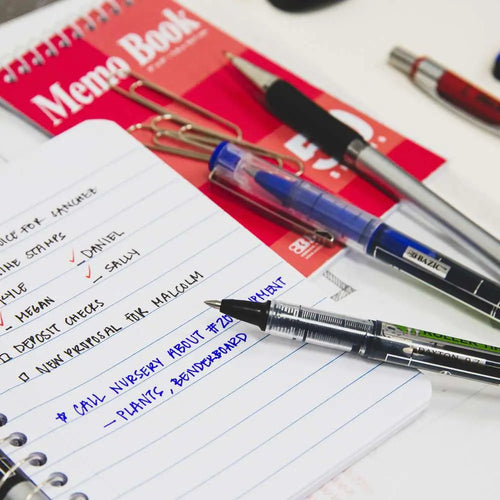 Memo Book
50
BAZIC
FOR SANCHEZ
STAMPS
- DANIEL
- SALLY
MEGAN
DEPOSIT CHECKS
NEW PROPOSAL FOR MALCOLM
CALL NURSERY ABOUT
- PLANTS, BENDERBOARD
BAZIC